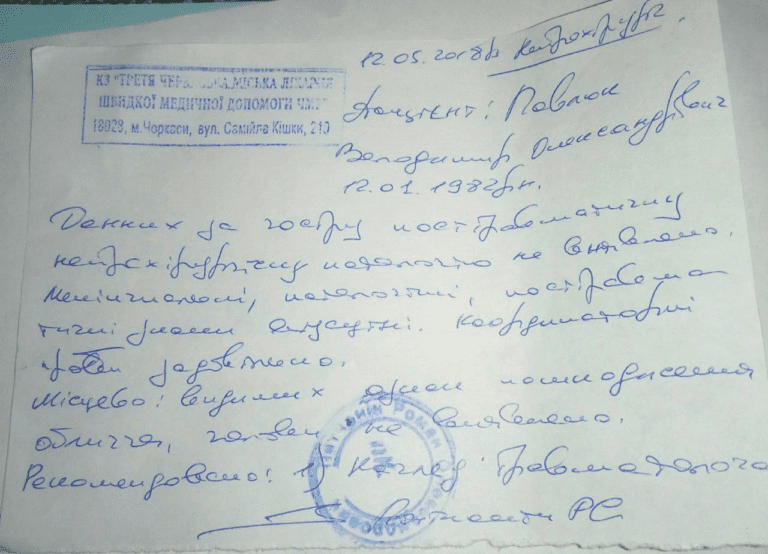 12.05.2018р Нейрохірург
КЗ "ТРЕТЯ ЧЕРКАСЬКА МІСЬКА ЛІКАРНЯ
ШВИДКОЇ МЕДИЧНОЇ ДОПОМОГИ ЧМР"
18028, м.Черкаси, вул. Самійла Кішки, 210
Пацієнт: Павлюк
Володимир Олександрович
12.01.1982рн.
Данних за гостру пост травматичну
нейрохірургічну патологію не виявлено.
Менінгиальні, патологічні, посттравма
тичні знаки відсутні. Координаторні
проби задовільно.
Місцево: видимих ознак пошкодження
обличчя, голови не виявлено.
Рекомендовано: 1) Нагляд травматолога
Роман